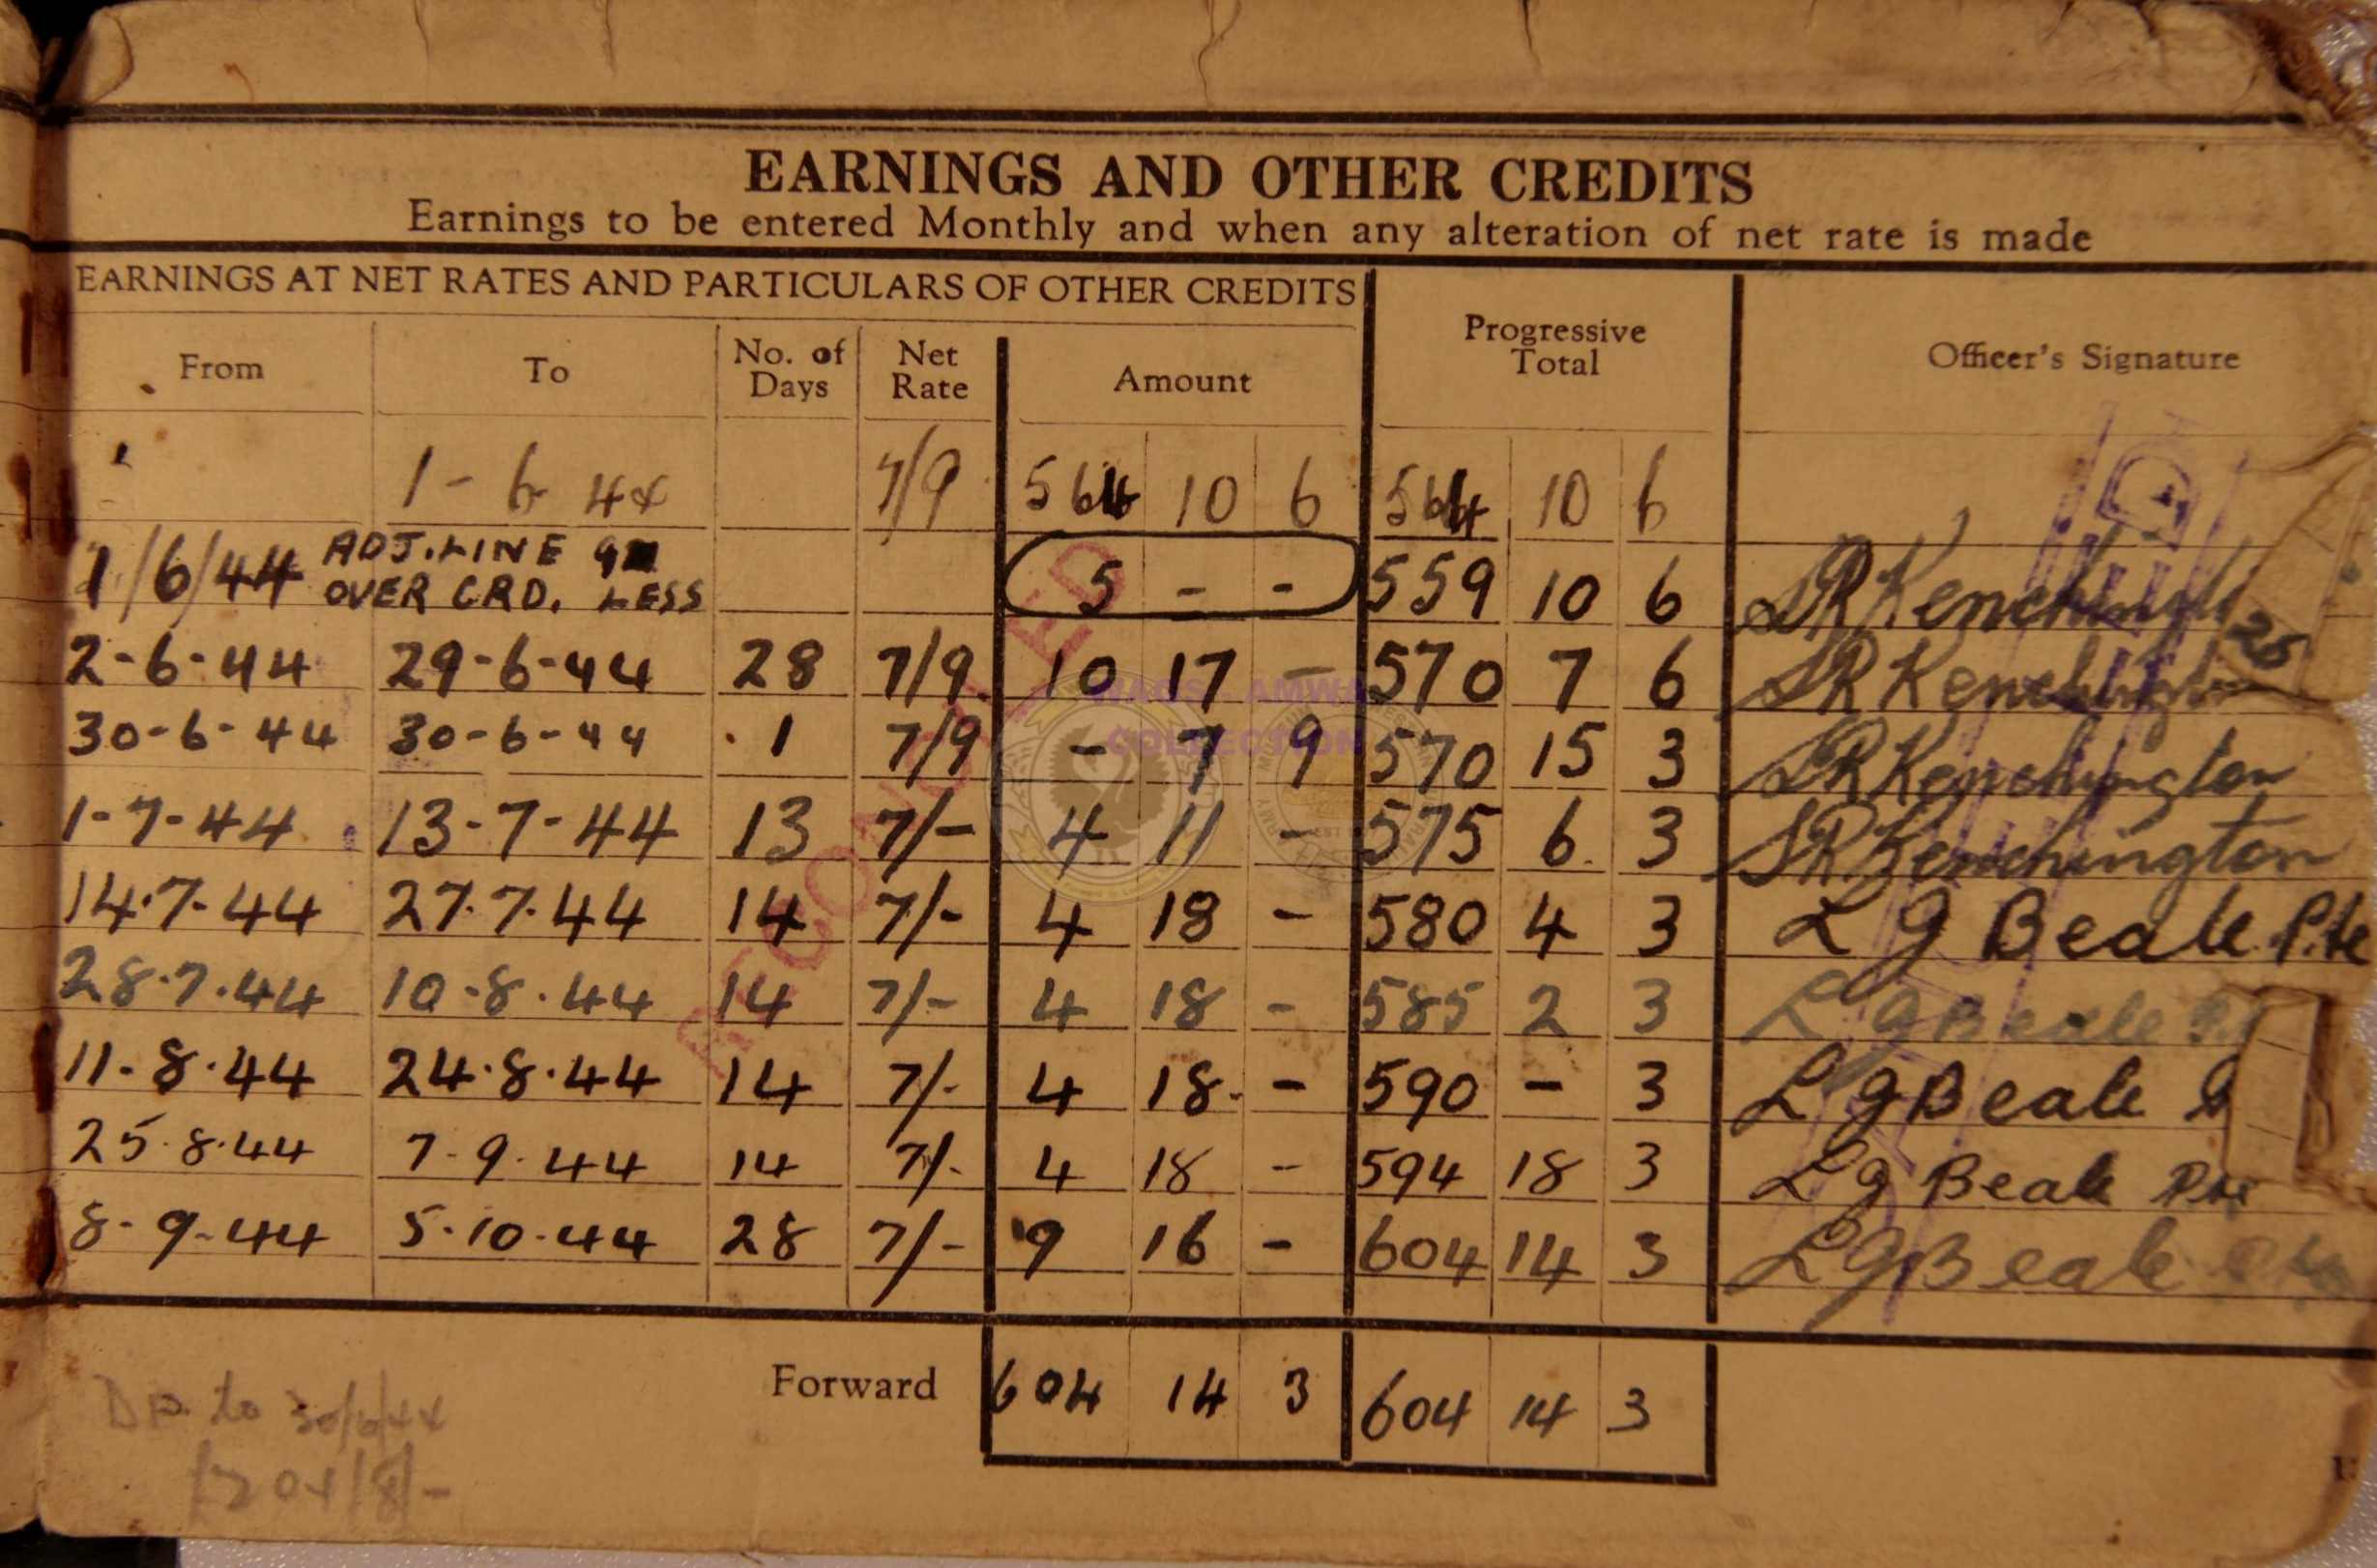 EARNINGS AND OTHER CREDITS
Earnings to be entered Monthly and when any alteration of net rate is made
EARNINGS AT NET RATES AND PARTICULARS OF OTHER CREDITS
From To No. of Days Net Rate Amount Progressive Total Officer's Signature
1-6-44 7/9 564 10 6 564 10 6
1/6/44 ADJ. LINE 9
OVER CRD. LESS 5 - - 559 10 6 SR Kenchington
2-6-44 29-6-44 28 7/9 10 17 - 570 7 6 SR Kenchington
30-6-44 30-6-44 1 7/9 - 7 9 570 15 3 SR Kenchington
1-7-44 13-7-44 13 7/- 4 11 - 575 6 3 SR Kenchington
14.7.44 27.7.44 14 7/- 4 18 - 580 4 3 L G Beale Pte
28.7.44 10.8.44 14 7/- 4 18 - 585 2 3 L G Beale
11.8.44 24.8.44 14 7/- 4 18 - 590 - 3 L G Beale
25.8.44 7.9.44 14 7/- 4 18 - 594 18 3 L G Beale Pte
8-9-44 5.10.44 28 7/- 9 16 - 604 14 3 L G Beale Pte
Forward 604 14 3 604 14 3
D.P. to 30/6/44
26
WAGS - AMWA
COLLECTION